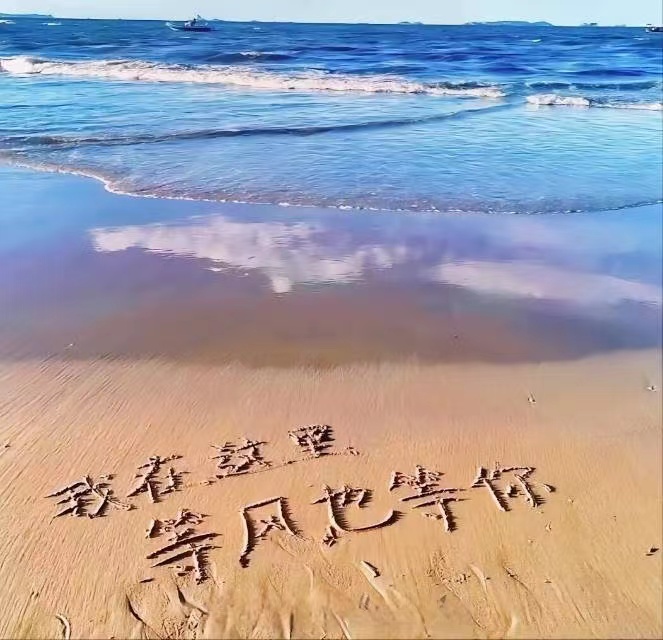 我在这里
等风也等你